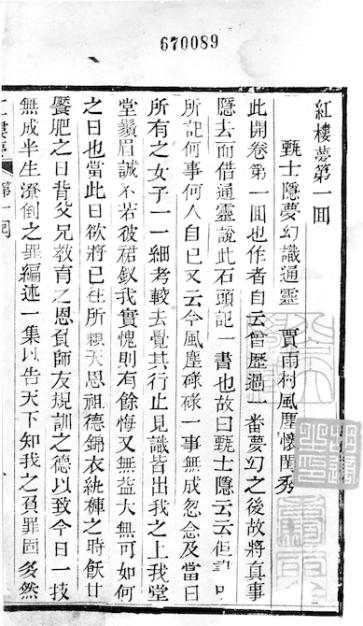 670089
紅樓夢第一回
甄士隱夢幻識通靈 賈雨村風塵懷閨秀
此開卷第一回也作者自云曾歷過一番夢幻之後故將真事
隱去而借通靈說此石頭記一書也故曰甄士隱云云但書中
所記何事何人自己又云今風塵碌碌一事無成忽念及當日
所有之女子一一細考較去覺其行止見識皆出我之上我堂
堂鬚眉誠不若彼裙釵我實愧則有餘悔又無益大無可如何
之日也當此日欲將已往所賴天恩祖德錦衣紈褲之時飫甘
饜肥之日背父兄教育之恩負師友規訓之德以致今日一技
無成半生潦倒之罪編述一集以告天下知我之負罪固多然
紅樓夢 第一回